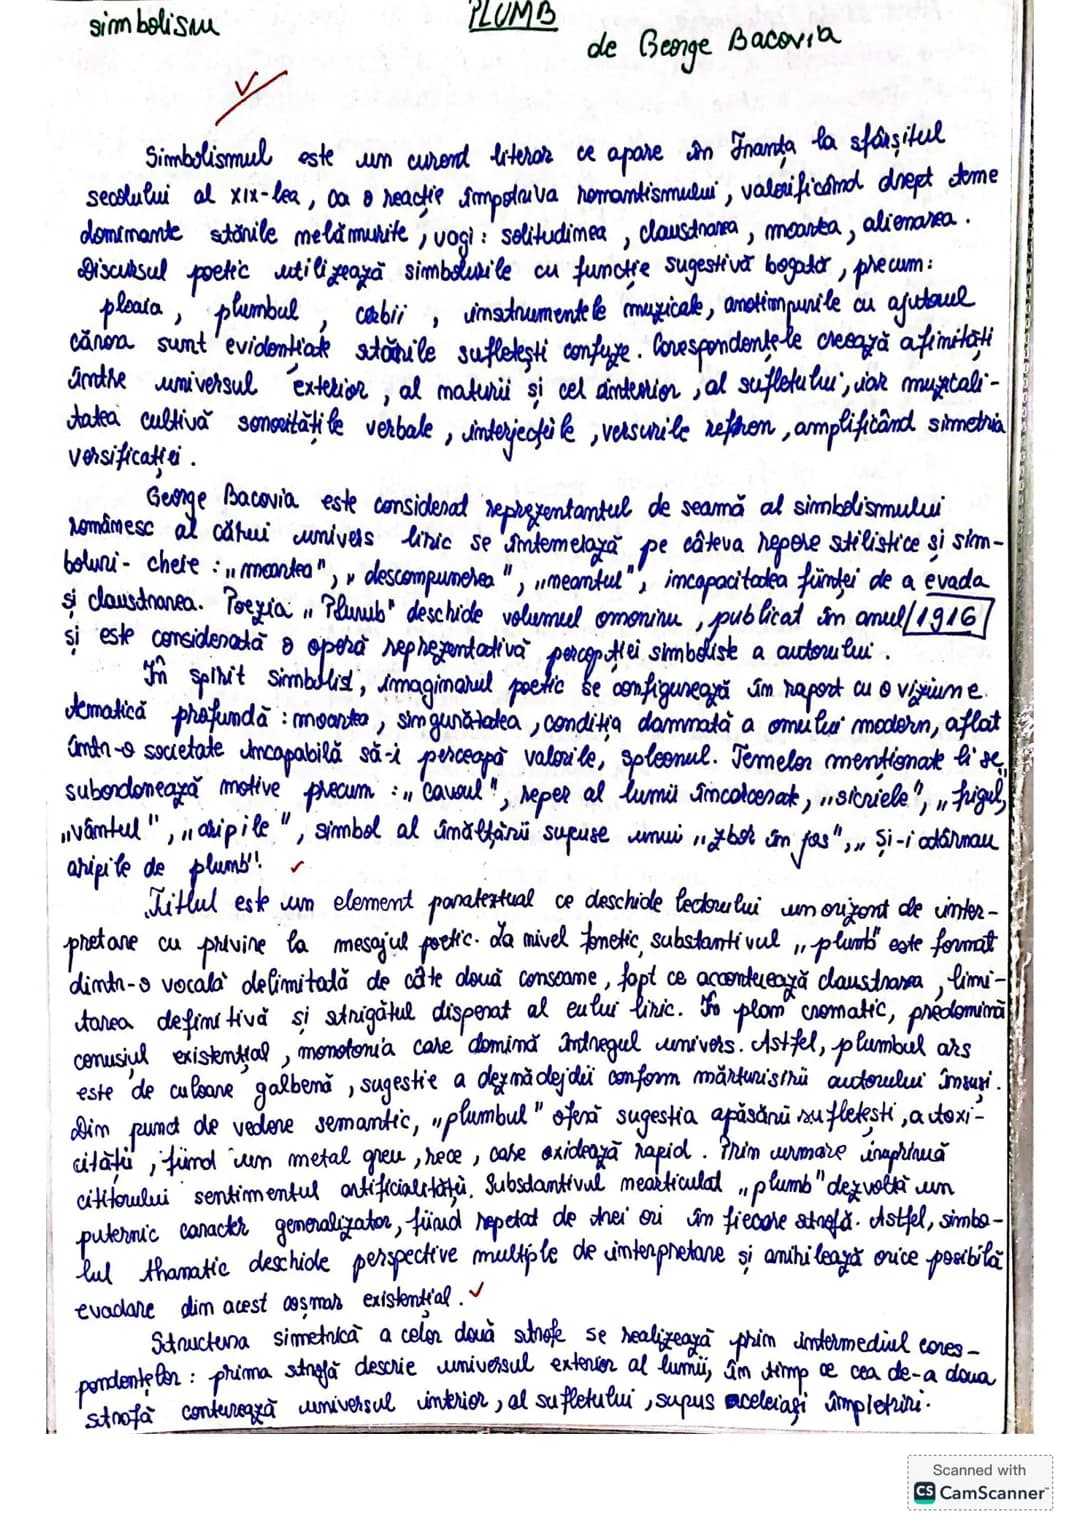 simbolism
PLUMB
de George Bacovia
Simbolismul este un curent literar ce apare în Franța la sfârșitul
secolului al XIX-lea, ca o reacție împotriva romantismului, valorificând drept teme
dominante stările nelămurite, vagi: solitudinea, claustrarea, moartea, alienarea.
Discursul poetic utilizează simbolurile cu funcție sugestivă bogată, precum:
ploaia, plumbul, corbii, instrumentele muzicale, anotimpurile cu ajutorul
cărora sunt evidențiate stările sufletești confuze. Corespondențele creează afinități
între universul exterior, al naturii și cel interior, al sufletului, iar muzicali-
tatea cultivă sonoritățile verbale, interjecțiile, versurile refren, amplificând simetria
versificației.
George Bacovia este considerat reprezentantul de seamă al simbolismului
românesc al cărui univers liric se întemeiază pe câteva repere stilistice și sim-
boluri-cheie: „moartea", „descompunerea", „neantul", incapacitatea ființei de a evada
și claustrarea. Poezia „Plumb" deschide volumul omonim, publicat în anul 1916
și este considerată o operă reprezentativă percepției simboliste a autorului.
În spirit simbolist, imaginarul poetic se configurează în raport cu o viziune
tematică profundă: moartea, singurătatea, condiția damnată a omului modern, aflat
într-o societate incapabilă să-i perceapă valorile, spleenul. Temelor menționate li se
subordonează motive precum: „cavoul", reper al lumii încarcerate, „sicriele", „frigul,
„vântul", „aripile", simbol al înălțării supuse unui „zbor în jos", „Și-i atârnau
aripile de plumb".
Titlul este un element paratextual ce deschide lectorului un orizont de inter-
pretare cu privire la mesajul poetic. La nivel fonetic, substantivul „plumb" este format
dintr-o vocală delimitată de câte două consoane, fapt ce accentuează claustrarea, limi-
tarea definitivă și strigătul disperat al eului liric. În plan cromatic, predomină
cenușiul existențial, monotonia care domină întregul univers. Astfel, plumbul ars
este de culoare galbenă, sugestie a deznădejdii conform mărturisirii autorului însuși.
Din punct de vedere semantic, „plumbul" oferă sugestia apăsării sufletești, a toxi-
cității, fiind un metal greu, rece, care oxidează rapid. Prin urmare inspiră
cititorului sentimentul artificialității. Substantivul nearticulat „plumb" dezvoltă un
puternic caracter generalizator, fiind repetat de trei ori în fiecare strofă. Astfel, simbo-
lul thanatic deschide perspective multiple de interpretare și anihilează orice posibilă
evadare din acest coșmar existențial.
Structura simetrică a celor două strofe se realizează prin intermediul cores-
pondențelor: prima strofă descrie universul exterior al lumii, în timp ce cea de-a doua
strofă conturează universul interior, al sufletului, supus aceleiași împietriri.
Scanned with
CS CamScanner